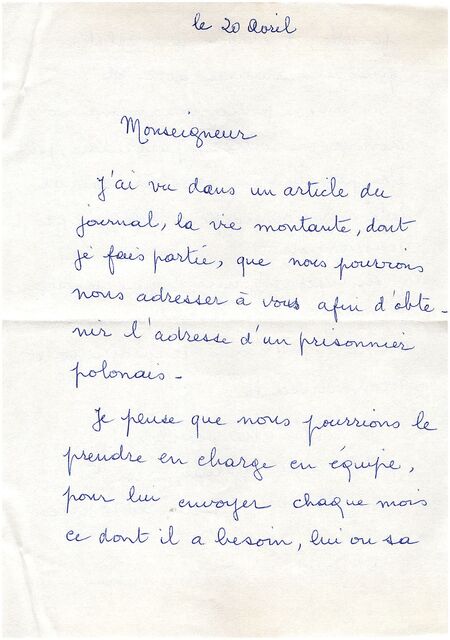 le 20 Avril
Monseigneur
J'ai vu dans un article du
journal, la vie montante, dont
je fais partie, que nous pourrions
nous adresser à vous afin d'obte-
nir l'adresse d'un prisonnier
polonais -
Je pense que nous pourrions le
prendre en charge en équipe,
pour lui envoyer chaque mois
ce dont il a besoin, lui ou sa